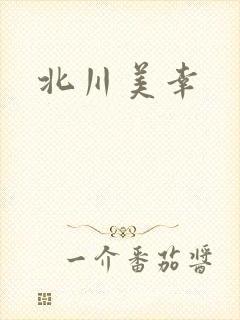 北川美幸
一介番茄酱